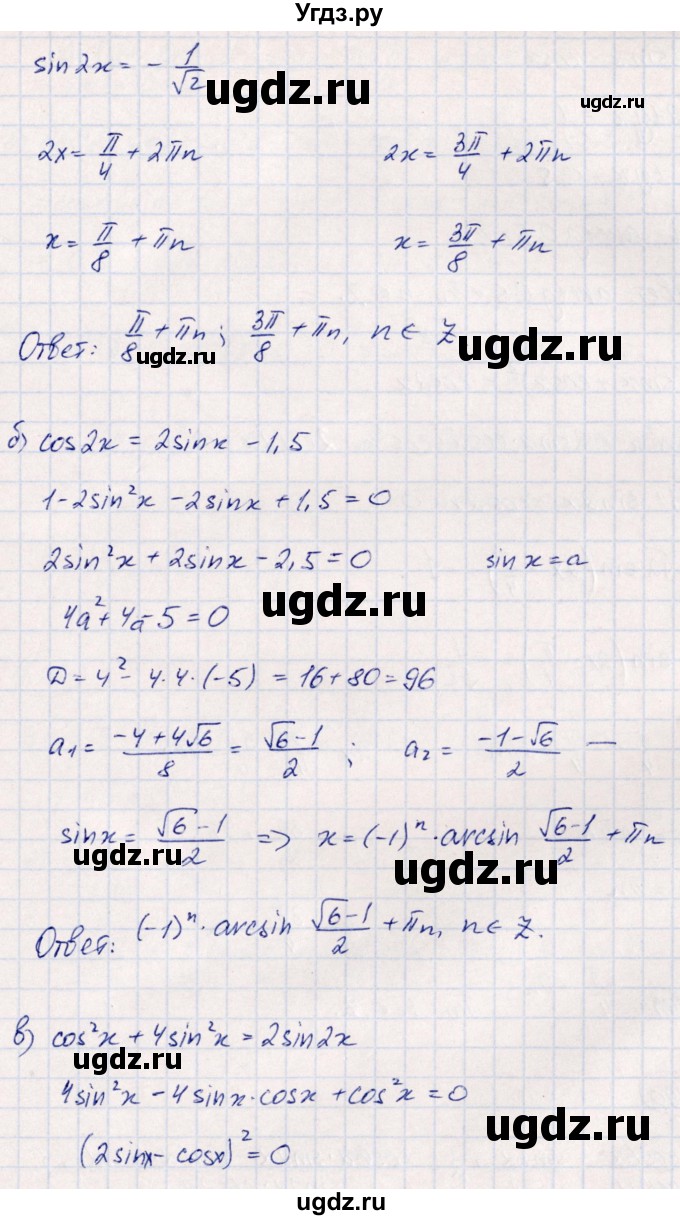 Угдз.ру
sin2x = - 1/√2
ugdz.ru
ugdz.ru
2x = π/4 + 2πn 2x = 3π/4 + 2πn
x = π/8 + πn x = 3π/8 + πn
Ответ: π/8 + πn; 3π/8 + πn, n ∈ Z
ugdz.ru
ugdz.ru
б) cos2x = 2sinx - 1,5
1 - 2sin²x - 2sinx + 1,5 = 0
2sin²x + 2sinx - 2,5 = 0 sinx = a
ugdz.ru
4a² + 4a - 5 = 0
D = 4² - 4·4·(-5) = 16 + 80 = 96
a₁ = (-4+4√6)/8 = (√6-1)/2 ; a₂ = (-1-√6)/2 —
sinx = (√6-1)/2 => x = (-1)ⁿ·arcsin (√6-1)/2 + πn
ugdz.ru
ugdz.ru
Ответ: (-1)ⁿ·arcsin (√6-1)/2 + πn, n ∈ Z.
в) cos²x + 4sin²x = 2sin2x
ugdz.ru
4sin²x - 4sinx·cosx + cos²x = 0
ugdz.ru
(2sinx - cosx)² = 0
ugdz.ru